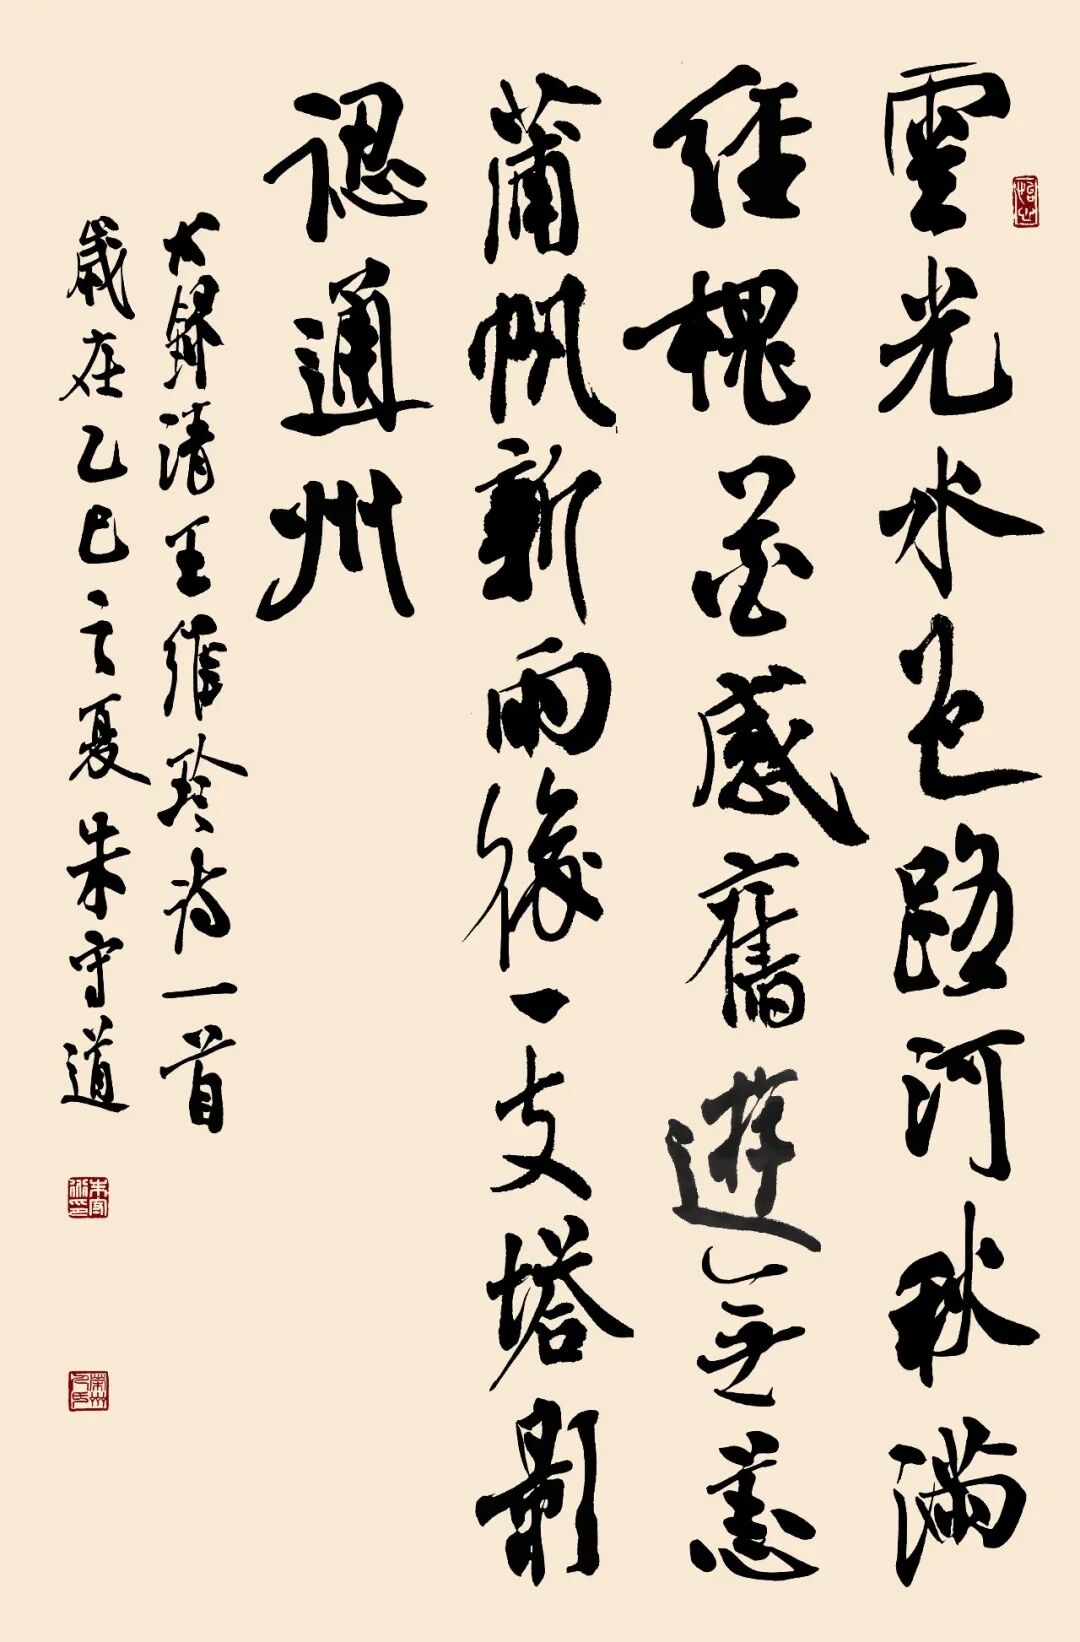 雲光水色路河秋滿
徑槐花感舊遊無恙
蒲帆新雨後一支塔影
認通州
右錄清王維珍詩一首
歲在乙巳之夏朱守道